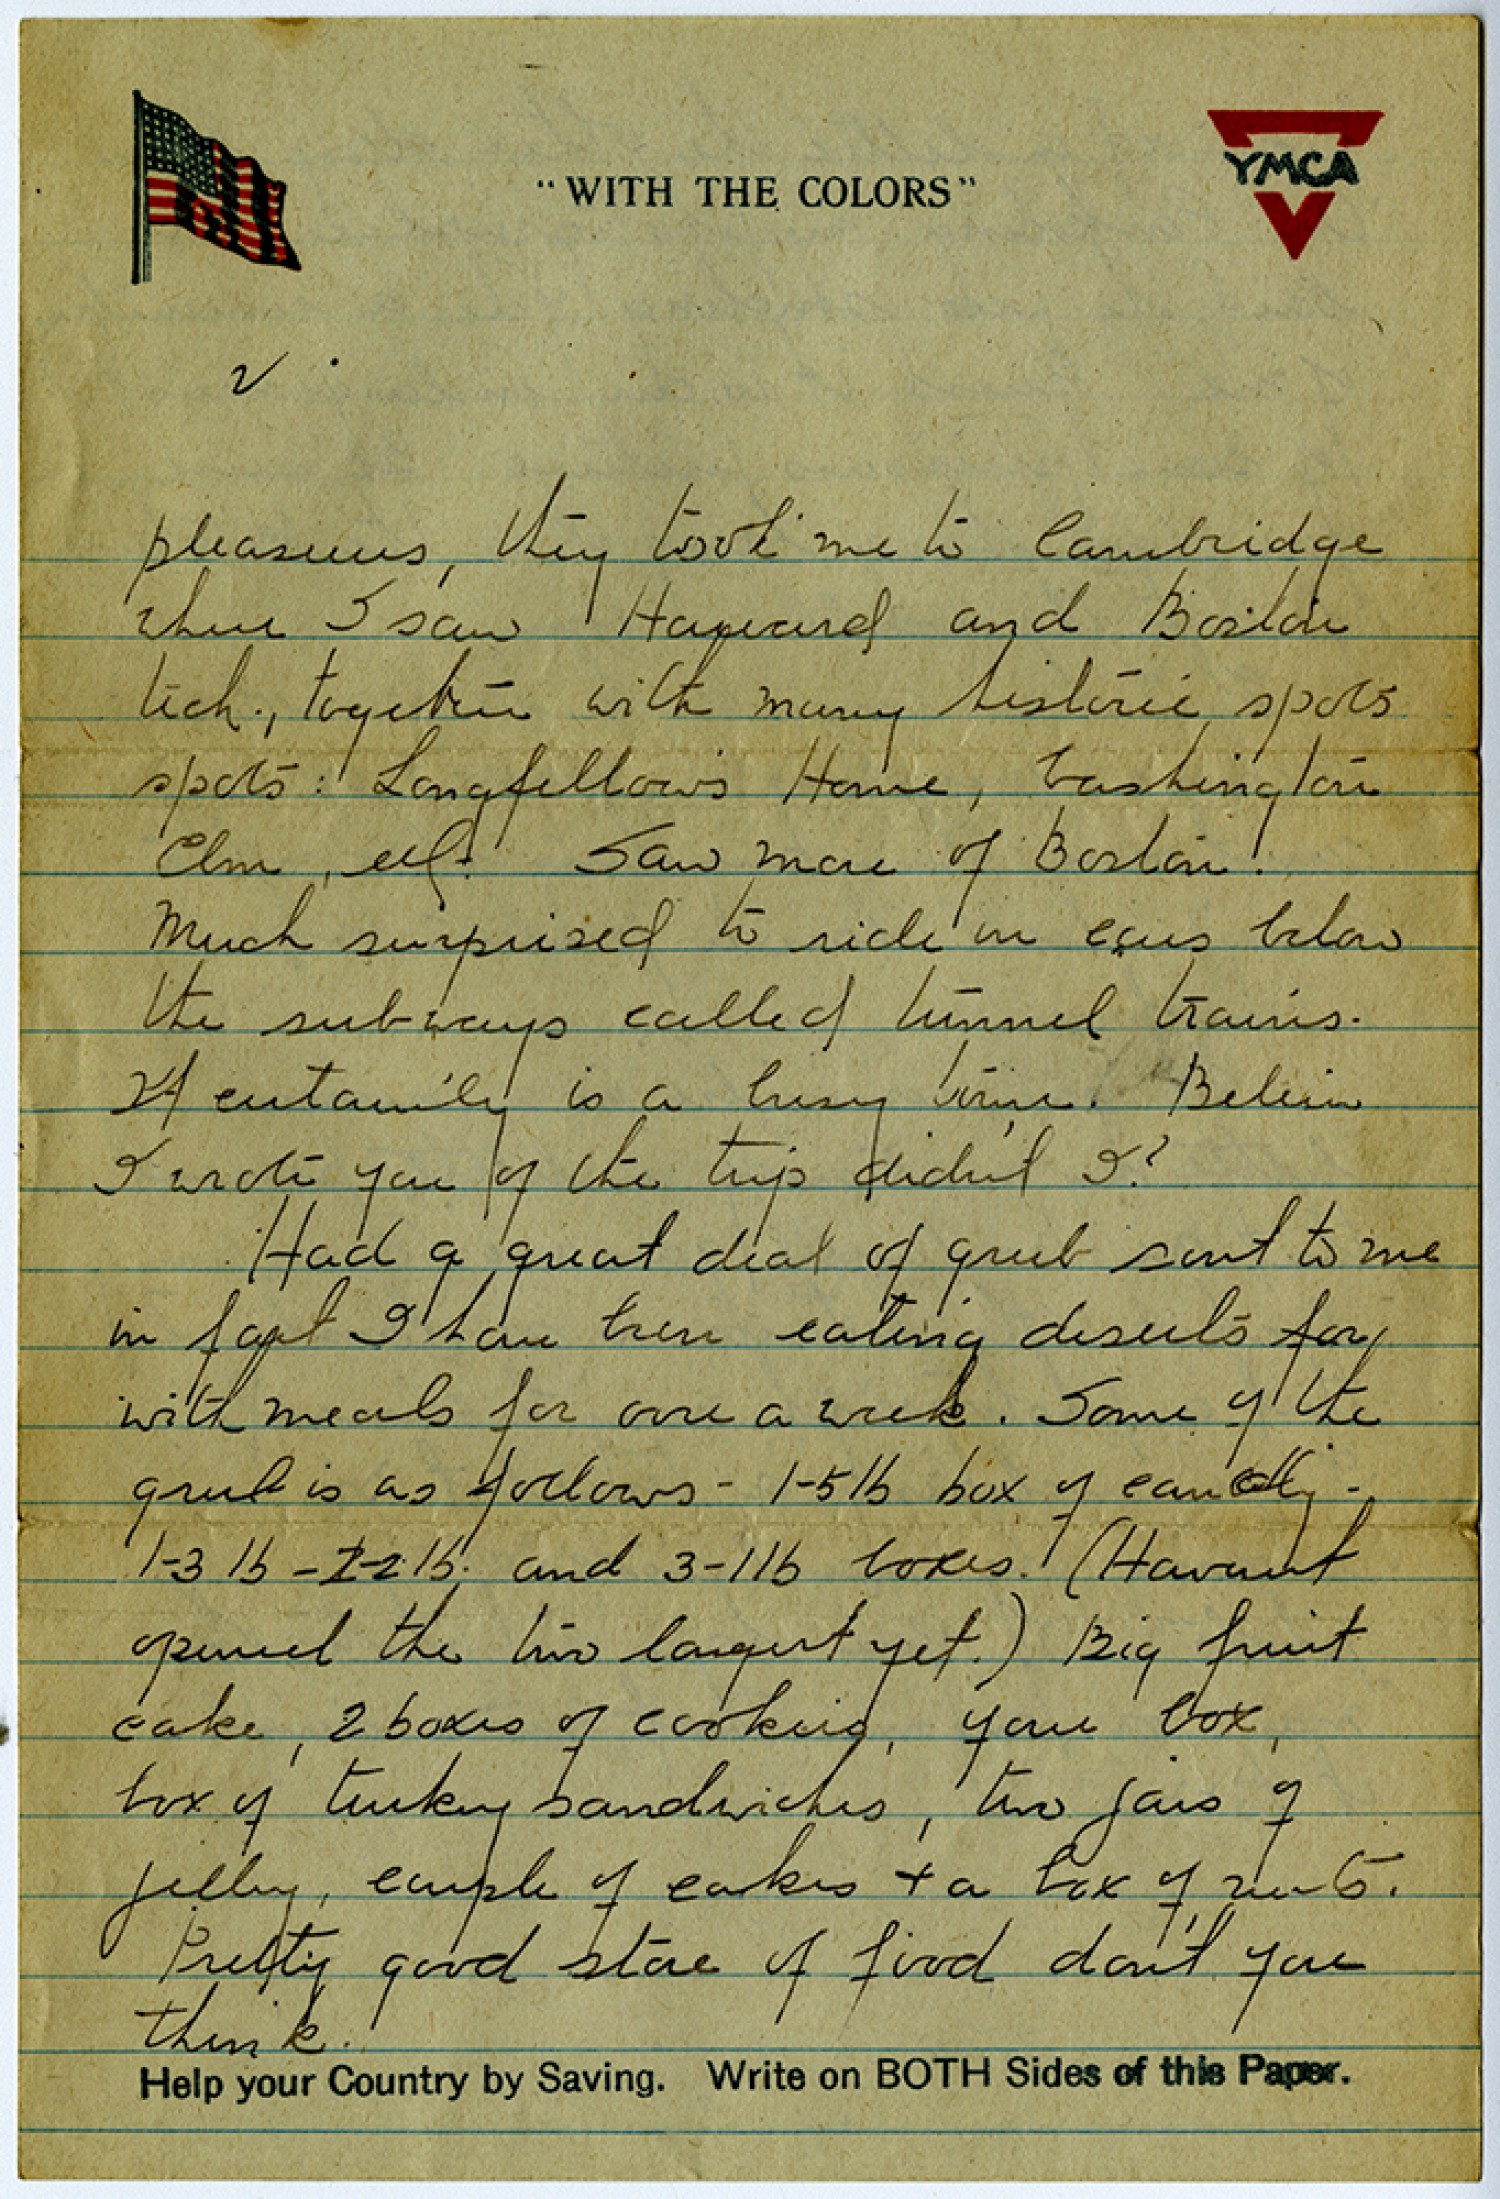 "WITH THE COLORS"
YMCA
2
pleasures, they took me to Cambridge
where I saw Harvard and Boston
tech., together with many historic spots
spots: Longfellow's Home, Washington
Elm, etc. Saw more of Boston.
Much surprised to ride in cars below
the subways called tunnel trains.
It certainly is a busy town. Believe
I wrote you of the trip didn't I?
Had a great deal of grub sent to me
in fact I have been eating deserts for
with meals for over a week. Some of the
grub is as follows - 1-5 lb box of candy -
1-3 lb - 2-2 lb. and 3-1 lb boxes. (Havent
opened the two largest yet.) Big fruit
cake, 2 boxes of cookies, your box,
box of turkey sandwiches, two jars of
jelly, couple of cakes + a box of nuts.
Pretty good store of food don't you
think.
Help your Country by Saving. Write on BOTH Sides of this Paper.